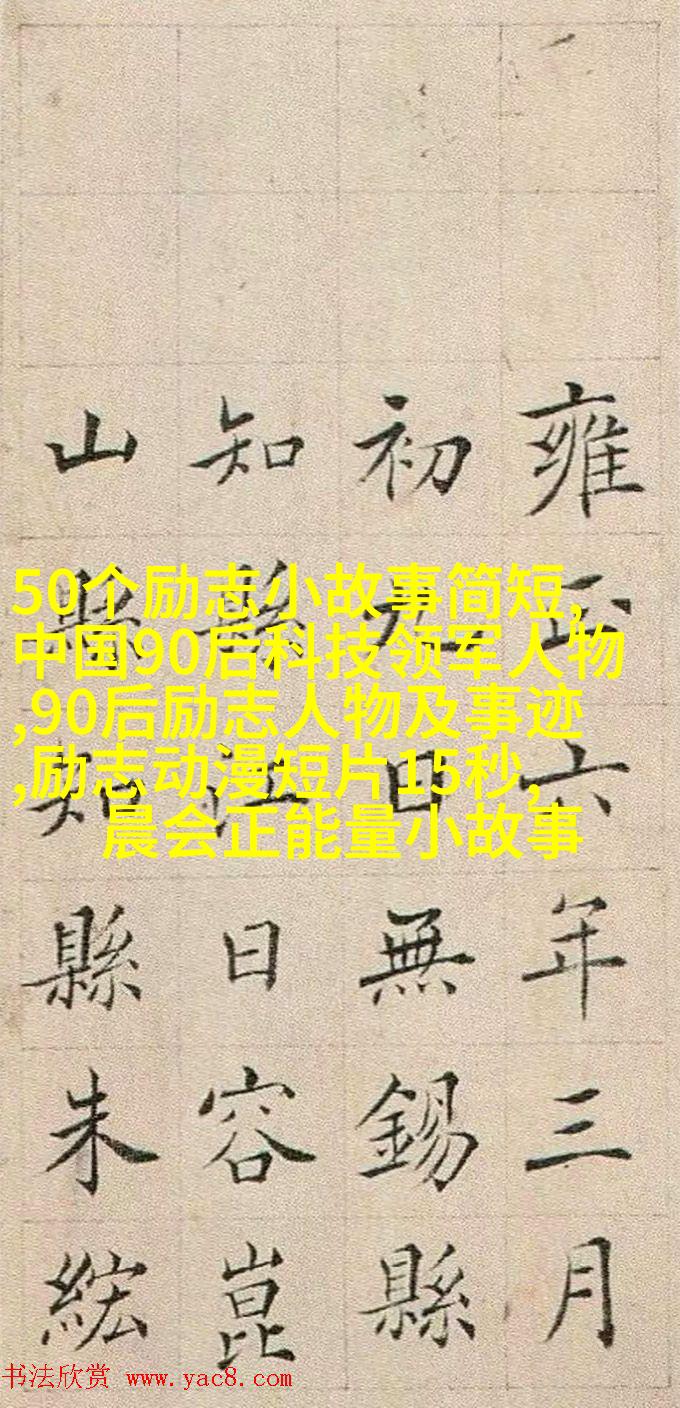 雍正六年三月
初九日無錫縣
知縣江日容崑
山縣知縣朱
50个励志小故事简短,
中国90后科技领军人物
,90后励志人物及事迹
,励志动漫短片15秒,
晨会正能量小故事
书法欣赏 www.yac8.com